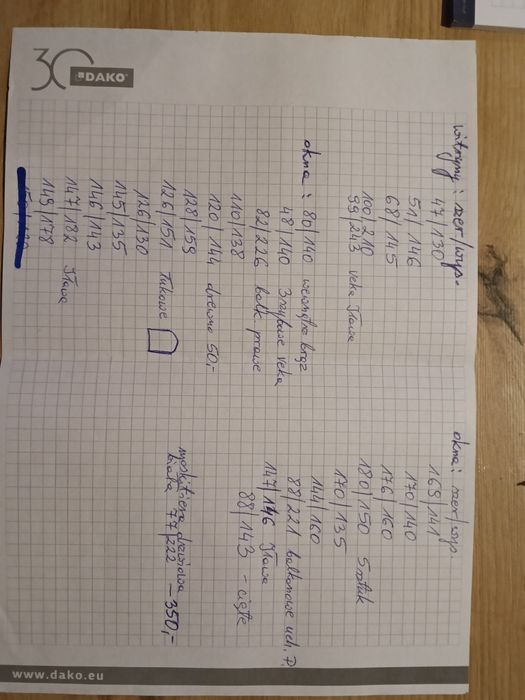 30 DAKO
witryny: szer/wys.
47/130
51/146
68/145
100/210
99/243 veka Iława
okna: 80/140 wewnątrz brąz
48/140 3 szybowe veka
82/226 balk prawe
110/138
120/144 drewno 50,-
128/159
126/151 łukowe
126/130
145/135
146/143
147/182 Iława
149/178
okna: szer/wys.
165/141
170/140
176/160
180/150 5 sztuk
170/135
144/160
88/221 balkonowe uch. P.
147/146 Iława
88/143 - ciepłe
moskitiera drzwiowa
biała 77/222 - 350,-
www.dako.eu